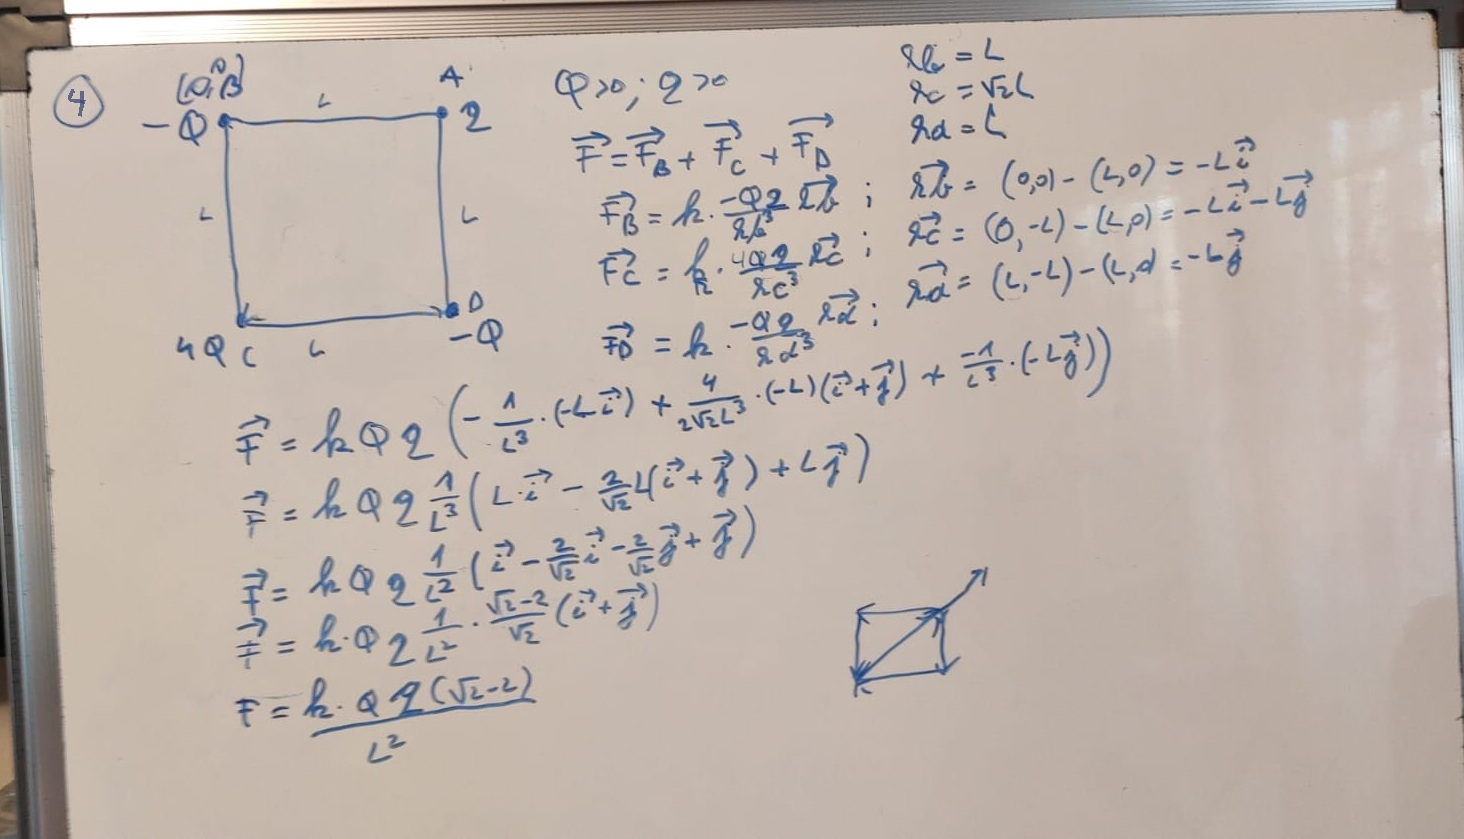 ④
(0,0)B
A
-Q
L
q
L
L
D
-Q
4Q C
L
Q>0; q>0
F⃗ = F⃗_B + F⃗_C + F⃗_D
r_b = L
r_c = √2L
r_d = L
F⃗_B = k · (-Qq / r_b³) r⃗_b ; r⃗_b = (0,0) - (L,0) = -L i⃗
F⃗_C = k · (4Qq / r_c³) r⃗_c ; r⃗_c = (0,-L) - (L,0) = -L i⃗ - L j⃗
F⃗_D = k · (-Qq / r_d³) r⃗_d ; r⃗_d = (L,-L) - (L,0 = -L j⃗
F⃗ = kQq (- 1/L³ · (-L i⃗) + 4/(2√2L³) · (-L)(i⃗ + j⃗) + -1/L³ · (-L j⃗))
F⃗ = kQq 1/L³ (L · i⃗ - 2/√2 L(i⃗ + j⃗) + L j⃗)
F⃗ = kQq 1/L² (i⃗ - 2/√2 i⃗ - 2/√2 j⃗ + j⃗)
F⃗ = k·Qq 1/L² · (√2-2)/√2 (i⃗ + j⃗)
F = k·Qq(√2-2) / L²